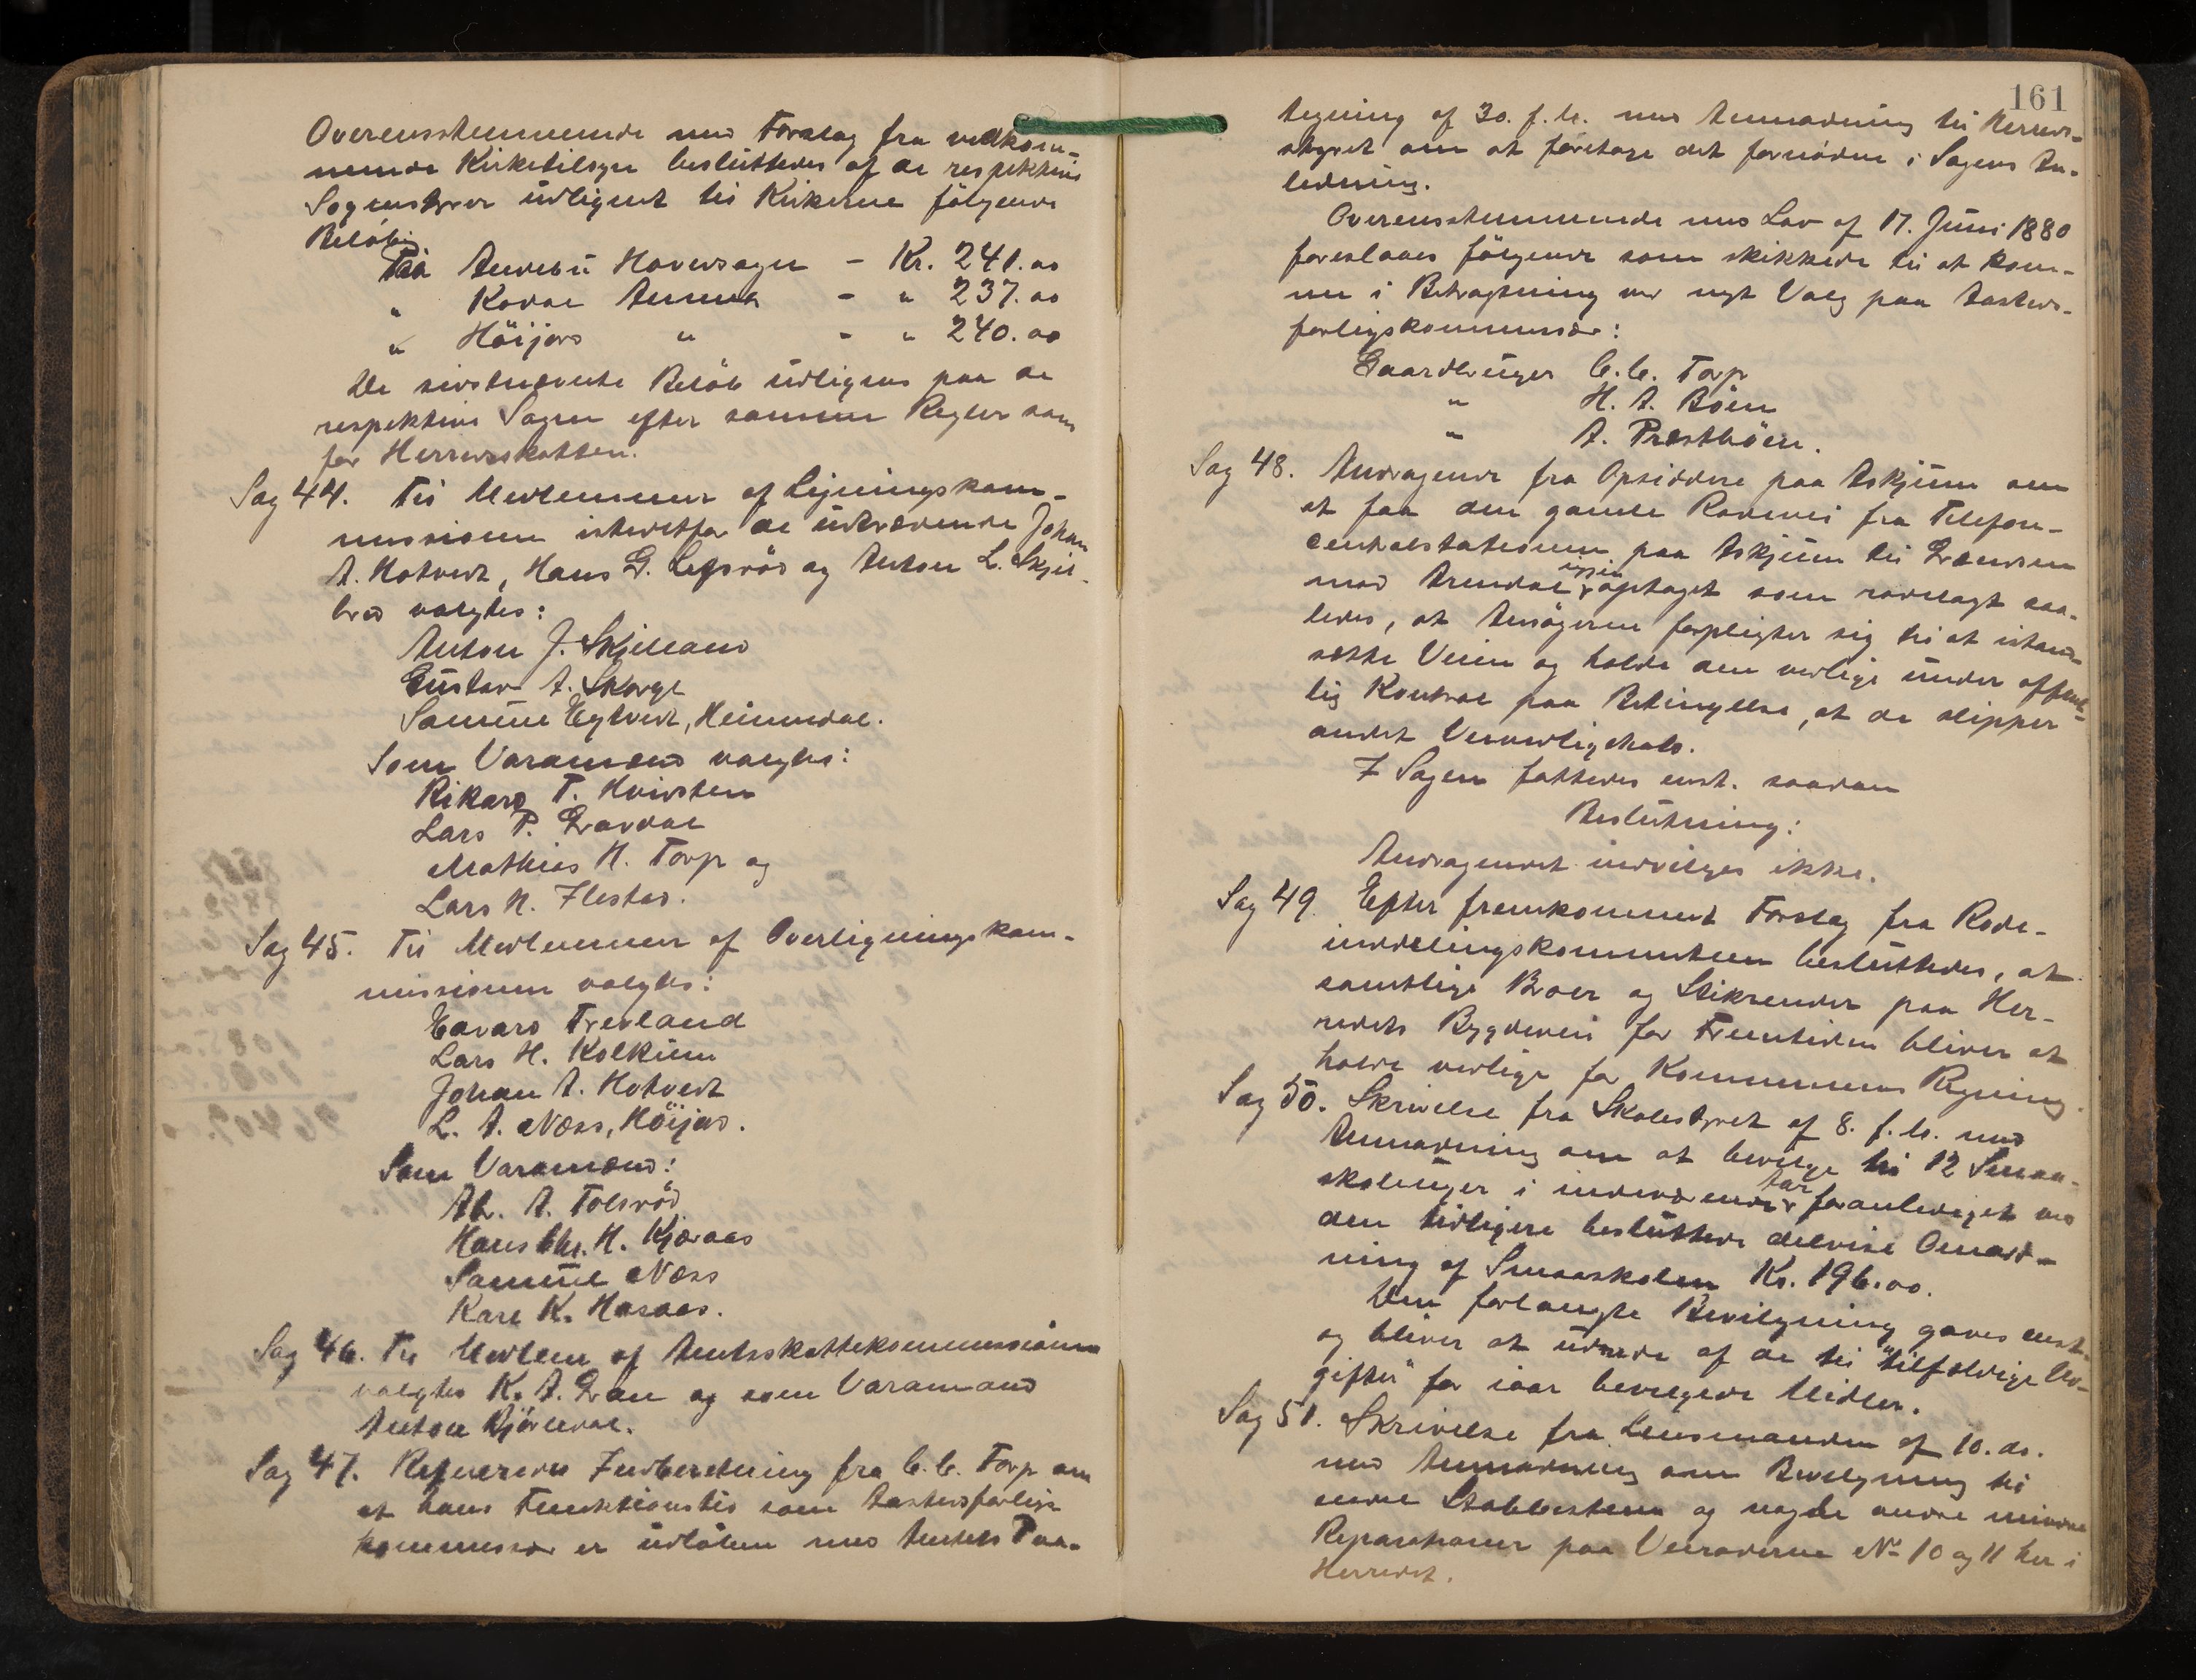 Overensstemmende med Forslag fra vedkom-
mende Kirketilsyn besluttedes af de respektive
Sognestyrer udlignet til Kirkerne følgende
Beløb:
Paa Andebu Hovedsogn - Kr. 241.00
" Kodal Annex - " 237.00
" Höijord " - " 240.00
De sidstnævnte Beløb udlignes paa de
respektive Sogne efter samme Regler som
for Herredsskatten.
Sag 44. Til Medlemmer af Ligningskom-
missionen istedetfor de udtrædende Johan
A. Hotvedt, Hans G. Lefsrød og Anton L. Skjel-
bred valgtes:
Anton J. Skjelland
Gustav A. Skorge
Samuel Eytvedt, Heimdal.
Som Varamænd valgtes:
Rikard T. Hvidsten
Lars P. Gravdal
Mathias H. Torp og
Lars N. Ilestad.
Sag 45. Til Medlemmer af Overligningskom-
missionen valgtes:
Edvard Trevland
Lars H. Kolkinn
Johan A. Hotvedt
L. A. Næss, Höijord.
Som Varamænd:
Ab. A. Tolsrød
Hans Chr. H. Kjæraas
Samuel Næss
Karl K. Hasaas.
Sag 46. Til Medlem af Amtsskattekommissionen
valgtes K. A. Gran og som Varamand
Anton Kjørndal.
Sag 47. Refereredes Indberetning fra C. C. Torp om
at hans Funktionstid som Aastedsforligs-
kommissær er udløben med Amtets Paa-
161
tegning af 30. f. M. med Anmodning til Herreds-
styret om at foretage det fornødne i Sagens An-
ledning.
Overensstemmende med Lov af 17. Juni 1880
foreslaaes følgende som skikkede til at kom-
me i Betragtning ved nyt Valg paa Aasteds-
forligskommissær:
Gaardbruger C. C. Torp
" H. A. Böen
" A. Præstbøen.
Sag 48. Andragende fra Opsiddere paa Askjum om
at faa den gamle Rodevei fra Telefon-
centralstationen paa Askjum til Grændsen
mod Arendal igjen optaget som rodelagt saa-
ledes, at Ansøgerne forpligter sig til at istand-
sætte Veien og holde den vedlige under offent-
lig Kontrol paa Betingelse, at de slipper
andet Veivedligehold.
I Sagen fattedes enst. saadan
Beslutning:
Andragendet indvilges ikke.
Sag 49. Efter fremkommet Forslag fra Rode-
inddelingskommiteen besluttedes, at
samtlige Broer og Stikrender paa Her-
redets Bygdeveie for Fremtiden bliver at
holde vedlige for Kommunens Regning.
Sag 50. Skrivelse fra Skolestyret af 8. f. M. med
Anmodning om at bevilge til 12 Smaa-
skoleuger i indeværende Aar foranlediget ved
den tidligere besluttede delvise Omord-
ning af Smaaskolen Kr. 196.00.
Den forlangte Bevilgning gaves enst.
og bliver at udrede af de til "tilfældige Ud-
gifter" for iaar bevilgede Midler.
Sag 51. Skrivelse fra Lensmanden af 10. ds.
med Anmodning om Bevilgning til
endel Stabbestene og nogle andre mindre
Reparationer paa Veiroderne No 10 og 11 her i
Herredet.